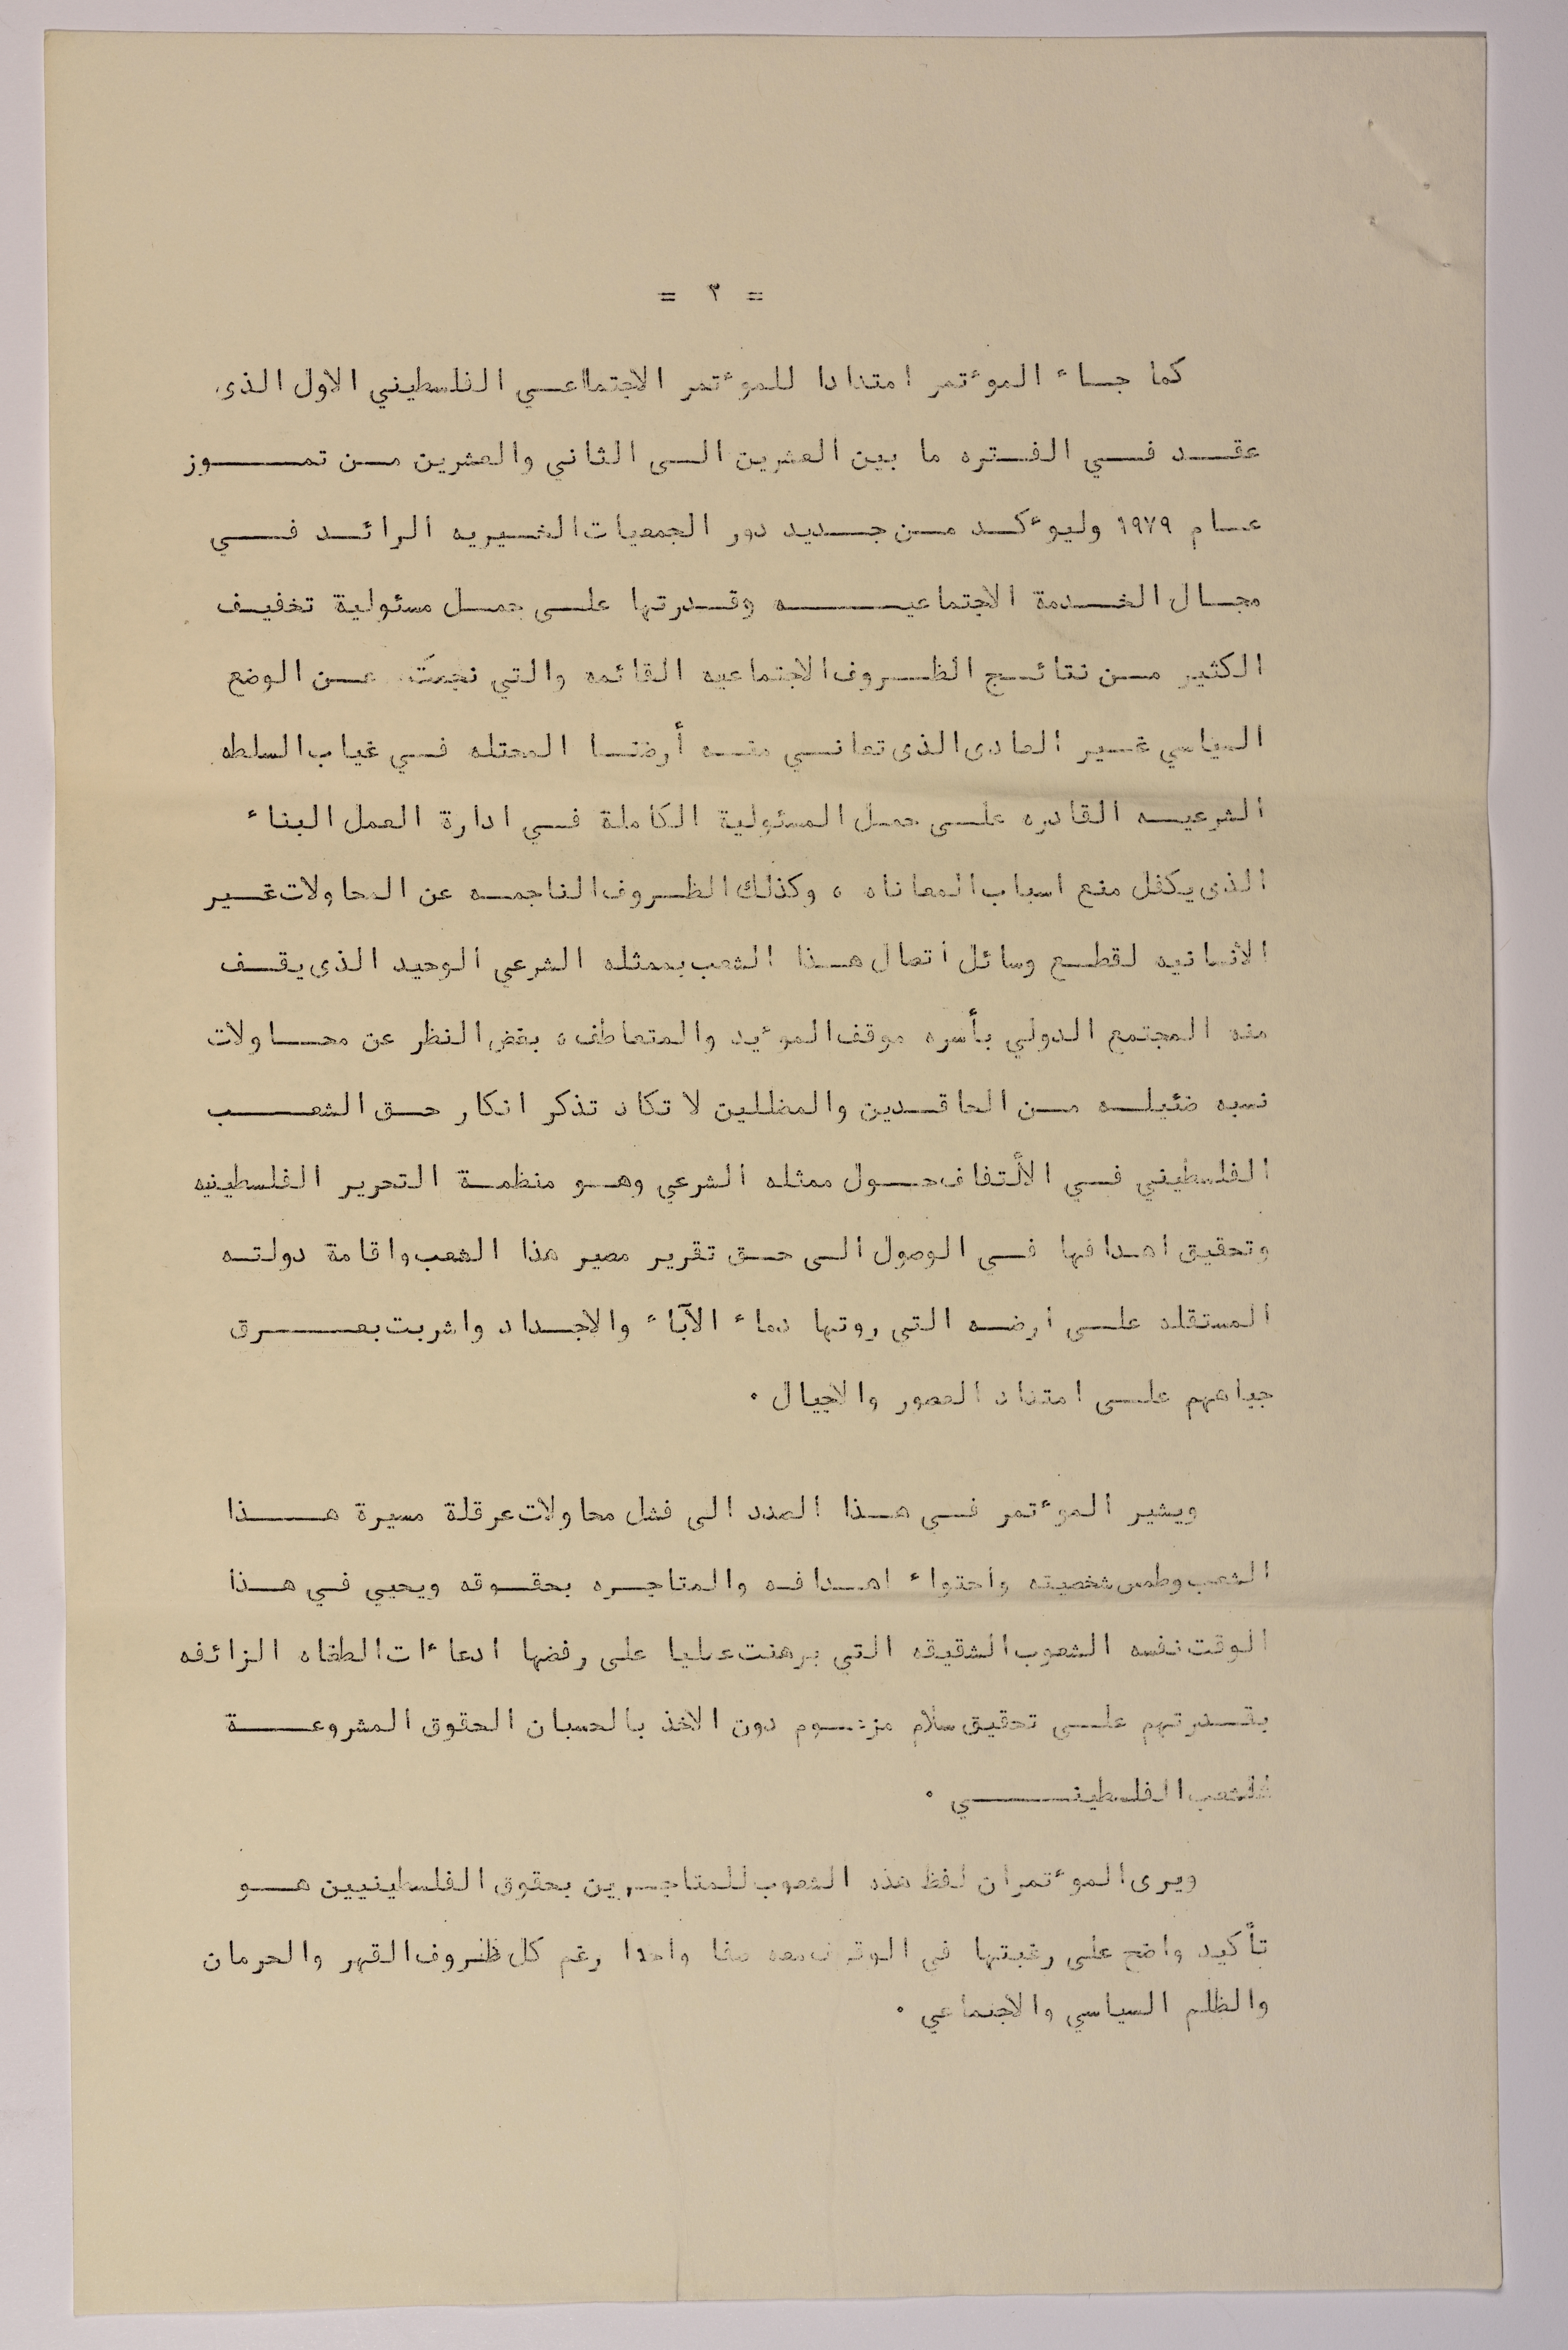 = ٣ =
كما جاء الموءتمر امتدادا للموءتمر الاجتماعي الفلسطيني الاول الذى
عقد في الفتره ما بين العشرين الى الثاني والعشرين من تموز
عام ١٩٧٩ وليوءكد من جديد دور الجمعيات الخيريه الرائد في
مجال الخدمة الاجتماعيه وقدرتها على حمل مسئولية تخفيف
الكثير من نتائج الظروف الاجتماعيه القائمه والتي نجمت عن الوضع
السياسي غير العادى الذى تعاني منه أرضنا المحتله في غياب السلطه
الشرعيه القادره على حمل المسئولية الكاملة في ادارة العمل البناء
الذى يكفل منع اسباب المعاناه ، وكذلك الظروف الناجمه عن المحاولات غير
الأنسانيه لقطع وسائل اتصال هذا الشعب بممثله الشرعي الوحيد الذى يقف
منه المجتمع الدولي بأسره موقف الموءيد والمتعاطف ، بغض النظر عن محاولات
نسبه ضئيله من الحاقدين والمضللين لا تكاد تذكر انكار حق الشعب
الفلسطيني في الألتفاف حول ممثله الشرعي وهو منظمة التحرير الفلسطينيه
وتحقيق اهدافها في الوصول الى حق تقرير مصير هذا الشعب واقامة دولته
المستقله على ارضه التي روتها دماء الآباء والاجداد واشربت بعرق
جباههم على امتداد العصور والاجيال .
ويشير الموءتمر في هذا الصدد الى فشل محاولات عرقلة مسيرة هذا
الشعب وطمس شخصيته واحتواء اهدافه والمتاجره بحقوقه ويحيي في هذا
الوقت نفسه الشعوب الشقيقه التي برهنت عمليا على رفضها ادعاءات الطغاه الزائفه
بقدرتهم على تحقيق سلام مزعوم دون الاخذ بالحسبان الحقوق المشروعة
للشعب الفلسطيني .
ويرى الموءتمر ان لفظ هذه الشعوب للمتاجرين بحقوق الفلسطينيين هو
تأكيد واضح على رغبتها في الوقوف معه صفا واحدا رغم كل ظروف القهر والحرمان
والظلم السياسي والاجتماعي .